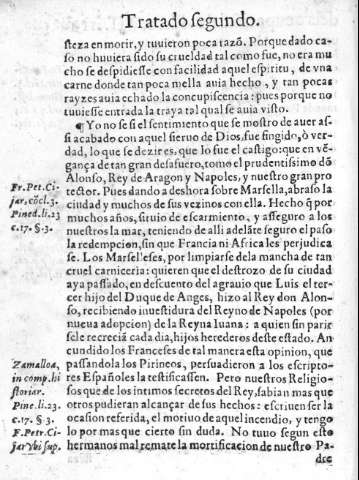 Tratado segundo.
steza en morir, y tuuieron poca razõ. Porque dado ca-
so no huuiera sido su crueldad tal como fue, no era mu
cho se despidiesse con facilidad aquel espiritu, de vna
carne donde tan poca mella auia hecho, y tan pocas
rayzes auia echado la concupiscencia: pues porque no
tuuiesse entrada la traya tal qual se auia visto.
¶ Yo no se si el sentimiento que se mostro de auer as-
si acabado con aquel sieruo de Dios, fue fingido, ò ver-
dad, lo que se dezir es, que lo fue el castigo: que en vẽ-
gança de tan gran desafuero, tomo el prudentissimo dõ
Alonso, Rey de Aragon y Napoles, y nuestro gran pro
tector. Pues dando a deshora sobre Marsella, abraso la
ciudad y muchos de sus vezinos con ella. Hecho q̃ por
muchos años, siruio de escarmiento, y asseguro a los
nuestros la mar, teniendo de alli adelãte seguro el passo
la redempcion, sin que Francia ni Africa les perjudica
se. Los Marselleses, por limpiarse dela mancha de tan
cruel carniceria: quieren que el destrozo de su ciudad
aya passado, en descuento del agrauio que Luis el ter-
cer hijo del Duque de Anges, hizo al Rey don Alon-
so, recibiendo inuestidura del Reyno de Napoles (por
nueua adopcion) de la Reyna Iuana: a quien sin parir
sele recrecia cada dia, hijos herederos deste estado. An
cundido los Franceses de tal manera esta opinion, que
passandola los Pirineos, persuadieron a los escripto-
res Españoles la testificassen. Pero nuestros Religio-
sos que de los intimos secretos del Rey, sabian mas que
otros pudieran alcançar de sus hechos: escriuen ser la
ocasion referida, el motiuo de aquel incendio, y tengo
lo por mas que cierto sin duda. No tuuo segun esto
hermanos mal remate la mortificacion de nuestro Pa-
dre
Fr. Pet. Ci-
jar, cõcl. 3.
Pined. li. 23
c. 17. §. 3.
Zamalloa,
in comp. hi
storiar.
Pine. li. 23.
c. 17. §. 3
F. Petr. Ci
jar vbi sup.